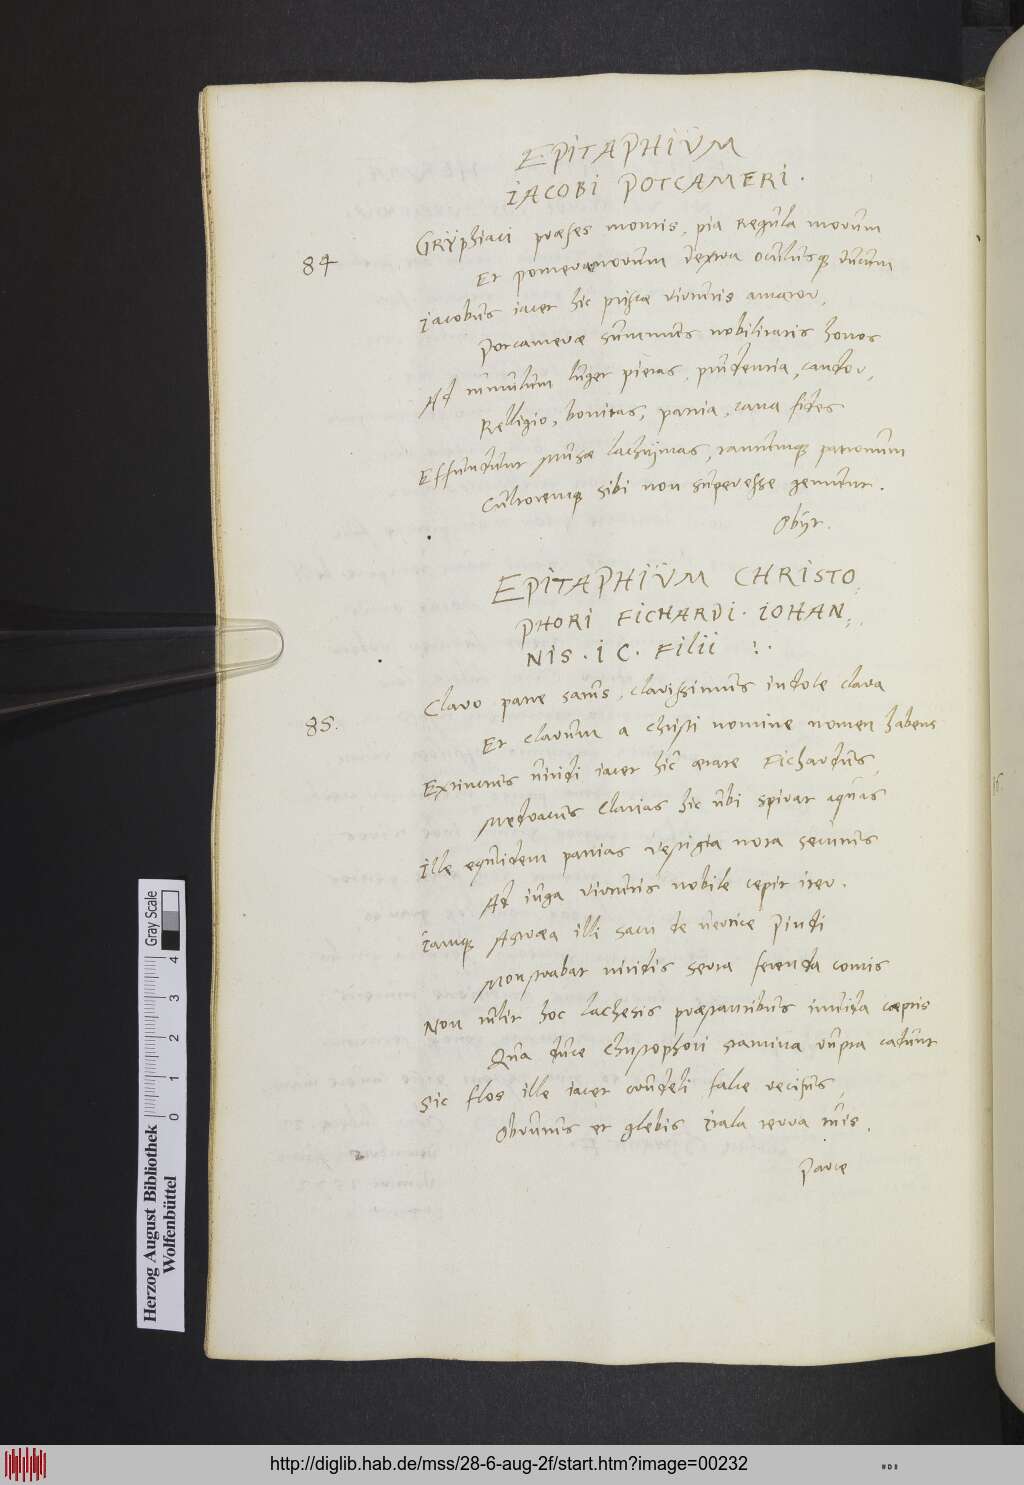 EPITAPHIUM
IACOBI POTCAMERI.
84
Gryphiaci præses montis, pia regula morum
Et pomeranorum dextra oculusq; ducum
Iacobus iacet hic priscæ virtutis amator,
Potcameræ summus nobilitatis honos
Ad tumulum luget pietas, prudentia, candor,
Relligio, bonitas, patria, cana fides
Effundunt Musæ lachrymas, tantumq; patronum
Cultoremq; sibi non superesse gemunt.
Obijt.
EPITAPHIUM CHRISTO,,
PHORI FICHARDI. IOHAN,,
NIS. I C. FILII :.
85.
Claro patre satus, clarissimus indole clara
Et clarum a Christi nomine nomen habens
Extinctus viridi iacet hic ætate Fichardus,
Medoacus Clarias hic ubi spirat aquas
Ille equidem patrias vestigia nota secutus
Ad iuga virtutis nobile cepit iter.
Iamq; Astræa illi sacri de vertice Pindi
Monstrabat viridis serta ferenda comis
Non tulit hoc Lachesis præstantibus invida cæptis
Qua duce Christophori stamina rupta cadunt
Sic flos ille iacet crudeli falce recisus,
Obrutus et glebis Itala terra tuis.
Parce
Herzog August Bibliothek
Wolfenbüttel
0 1 2 3 4
Gray Scale
http://diglib.hab.de/mss/28-6-aug-2f/start.htm?image=00232